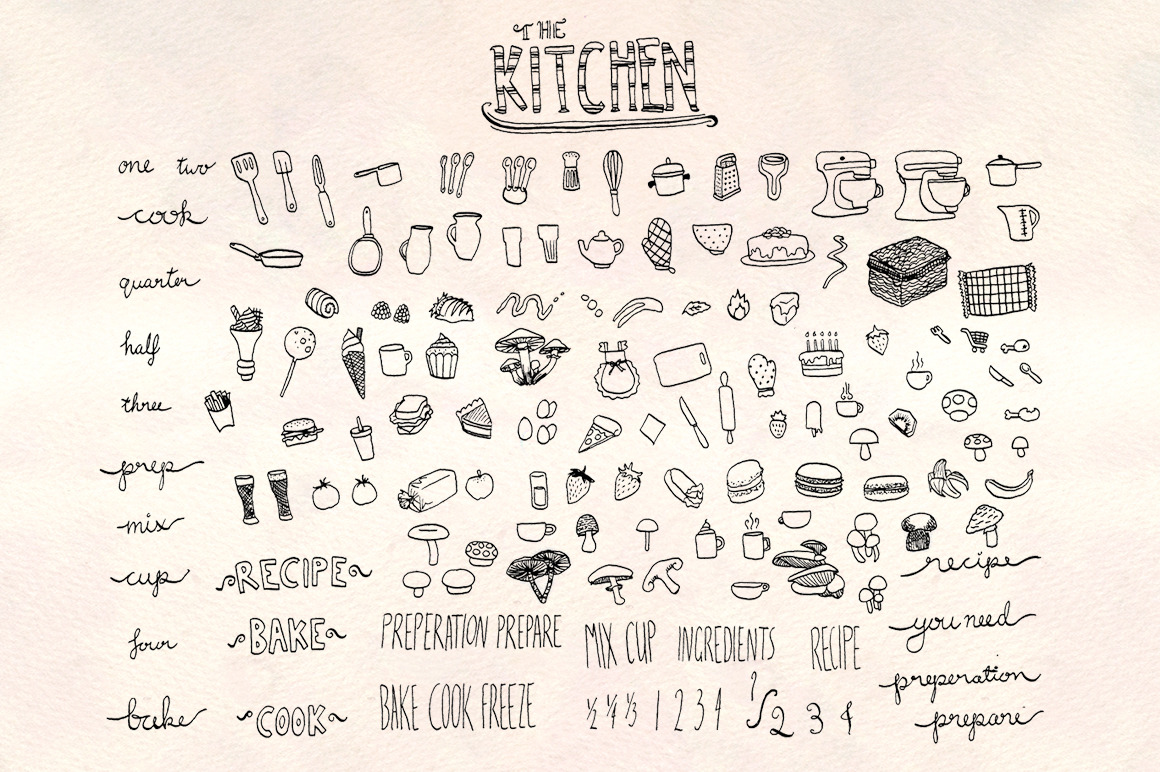 THE
KITCHEN
one two
cook
quarter
half
three
prep
mix
cup
four
bake
RECIPE
BAKE
COOK
PREPERATION PREPARE
BAKE COOK FREEZE
MIX CUP INGREDIENTS RECIPE
½ ¼ ⅓ 1 2 3 4 1/2 3 4
recipe
you need
preperation
prepare